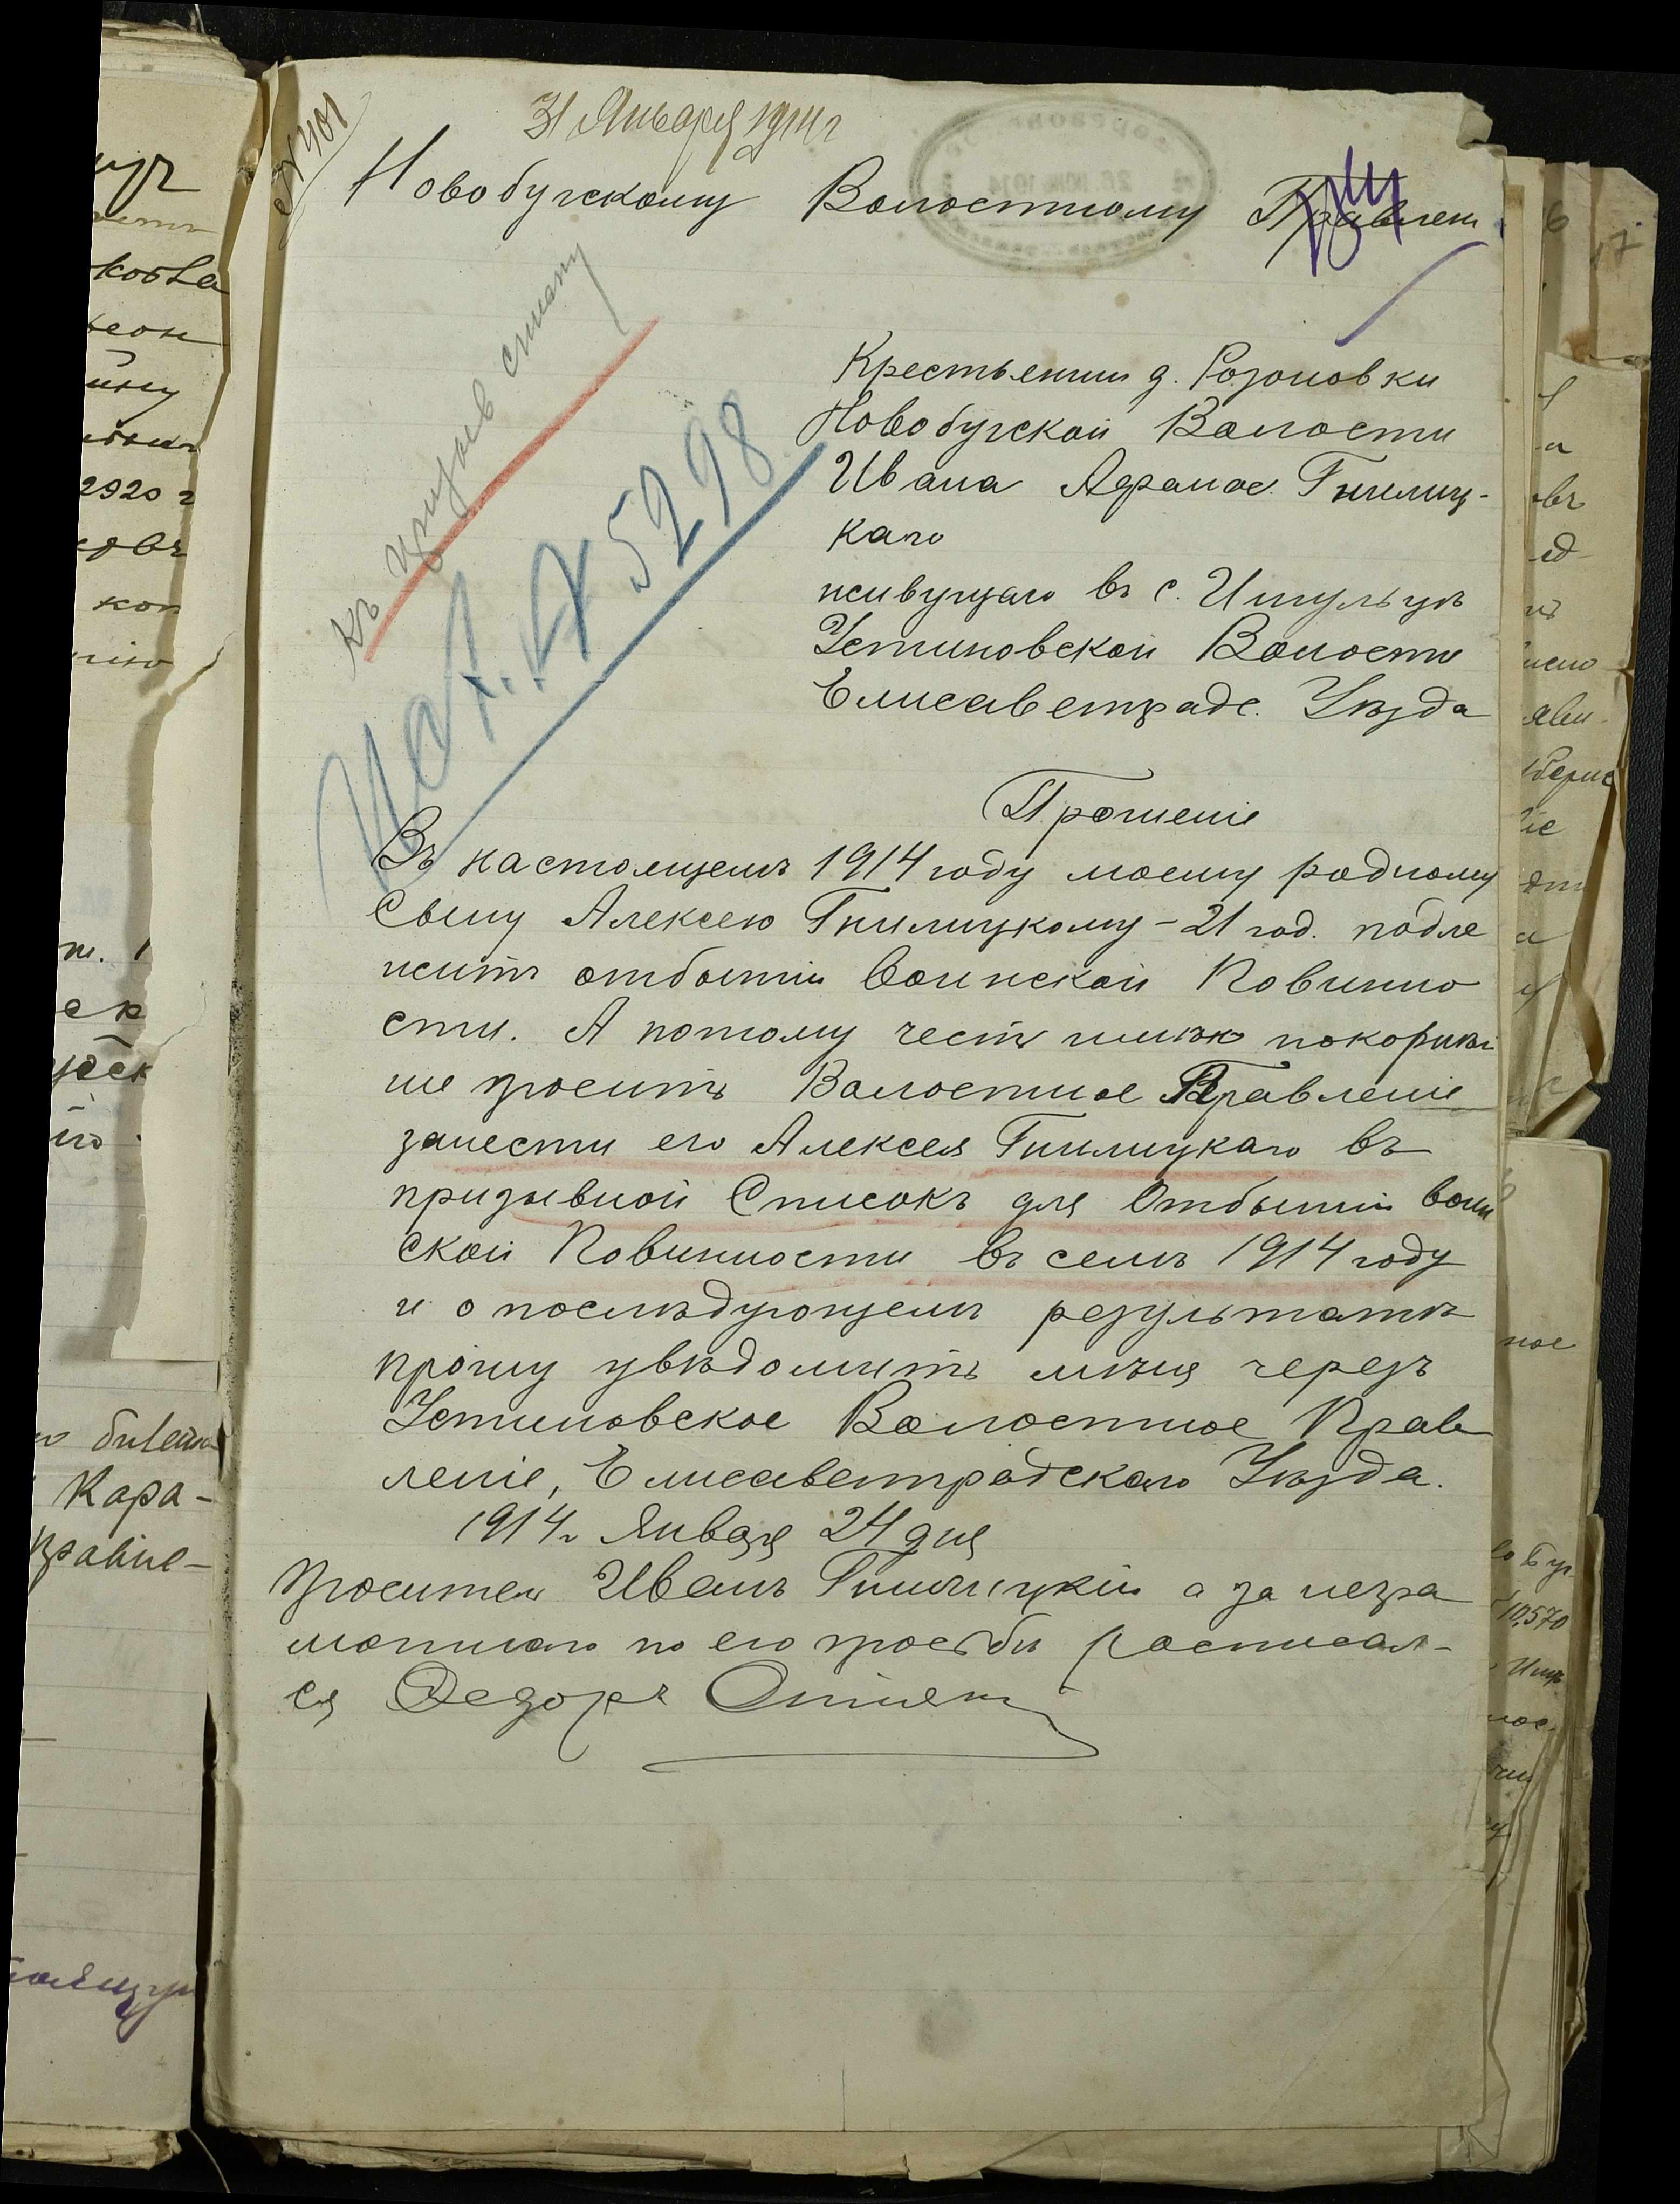 № 401
31 Января 1914 г
Новобугскому Волостному Правлен
къ призыв списку
Крестьянин д. Розоновки
Новобугской Волости
Ивана Афанас. Гнилиц-
каго
живущаго въ с. Ингульцъ
Устиновской Волости
Елисаветградс. Уѣзда
№ 5298
Прошеніе
Въ настоящемъ 1914 году моему родному
Сыну Алексею Гнилицкому - 21 год. подле
житъ отбытiи воинской Повинно
сти. А потому честь имѣю покорнѣй
ше просить Волостное Правленіе
занести его Алексея Гнилицкаго въ
призывной Списокъ для Отбытiи воин
ской Повинности въ семъ 1914 году
и о послѣдующемъ результатѣ
прошу увѣдомить мѣня черезъ
Устиновское Волостное Прав
леніе, Елисаветградскаго Уѣзда.
1914 г. Января 24 дня
Проситель Иванъ Гнилицкiй а за негра
мотнаго по его просьбѣ росписал-
ся Федоръ